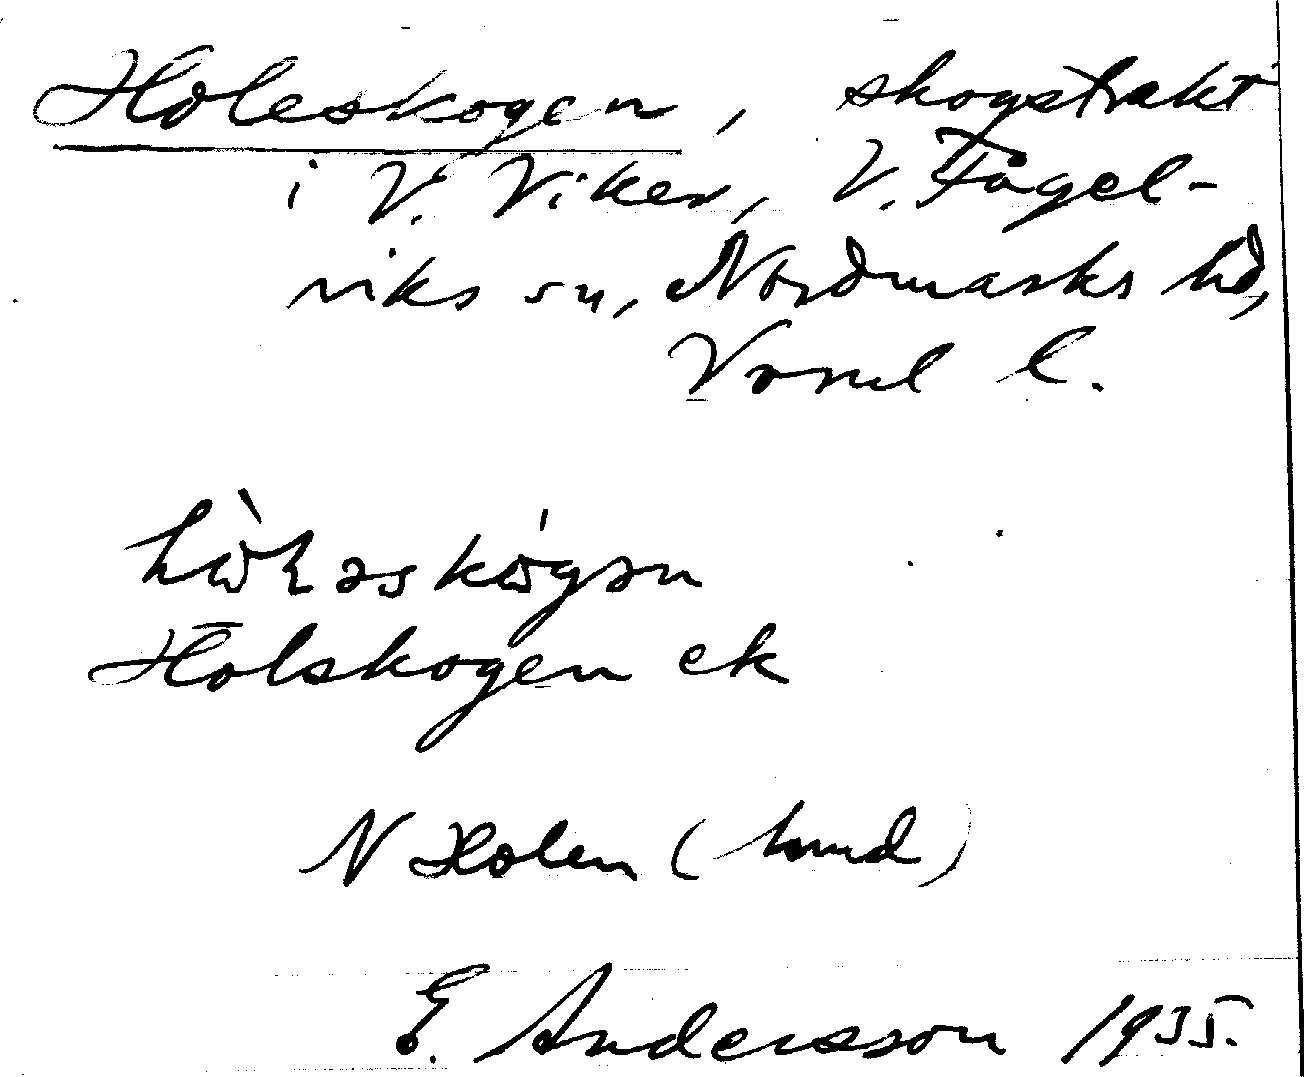 Holeskogen, skogstrakt
i V. Viken, V. Fågel-
viks sn, Nordmarks hd,
Vrml l.
Holskogen ek
N Holen (hmd)
E. Andersson 1935.